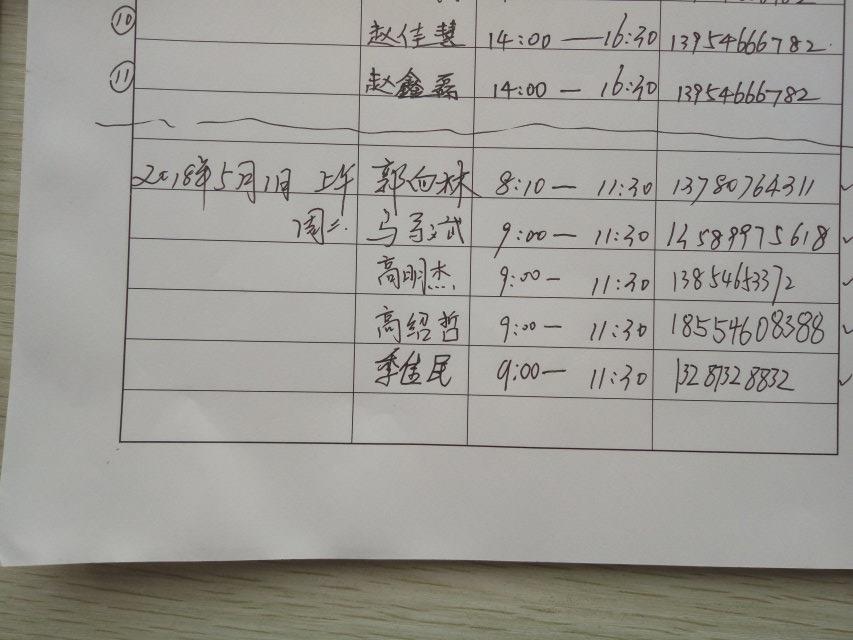 ⑩ 赵佳慧 14:00 — 16:30 13954666782
⑪ 赵鑫磊 14:00 — 16:30 13954666782
2018年5月1日 上午 郭向林 8:10 — 11:30 13780764311 ✓
周二 9:00 — 11:30 ✓
高明杰 9:00 — 11:30 13854653372 ✓
高绍哲 9:00 — 11:30 18554608388 ✓
季佳民 9:00 — 11:30 13281328832 ✓